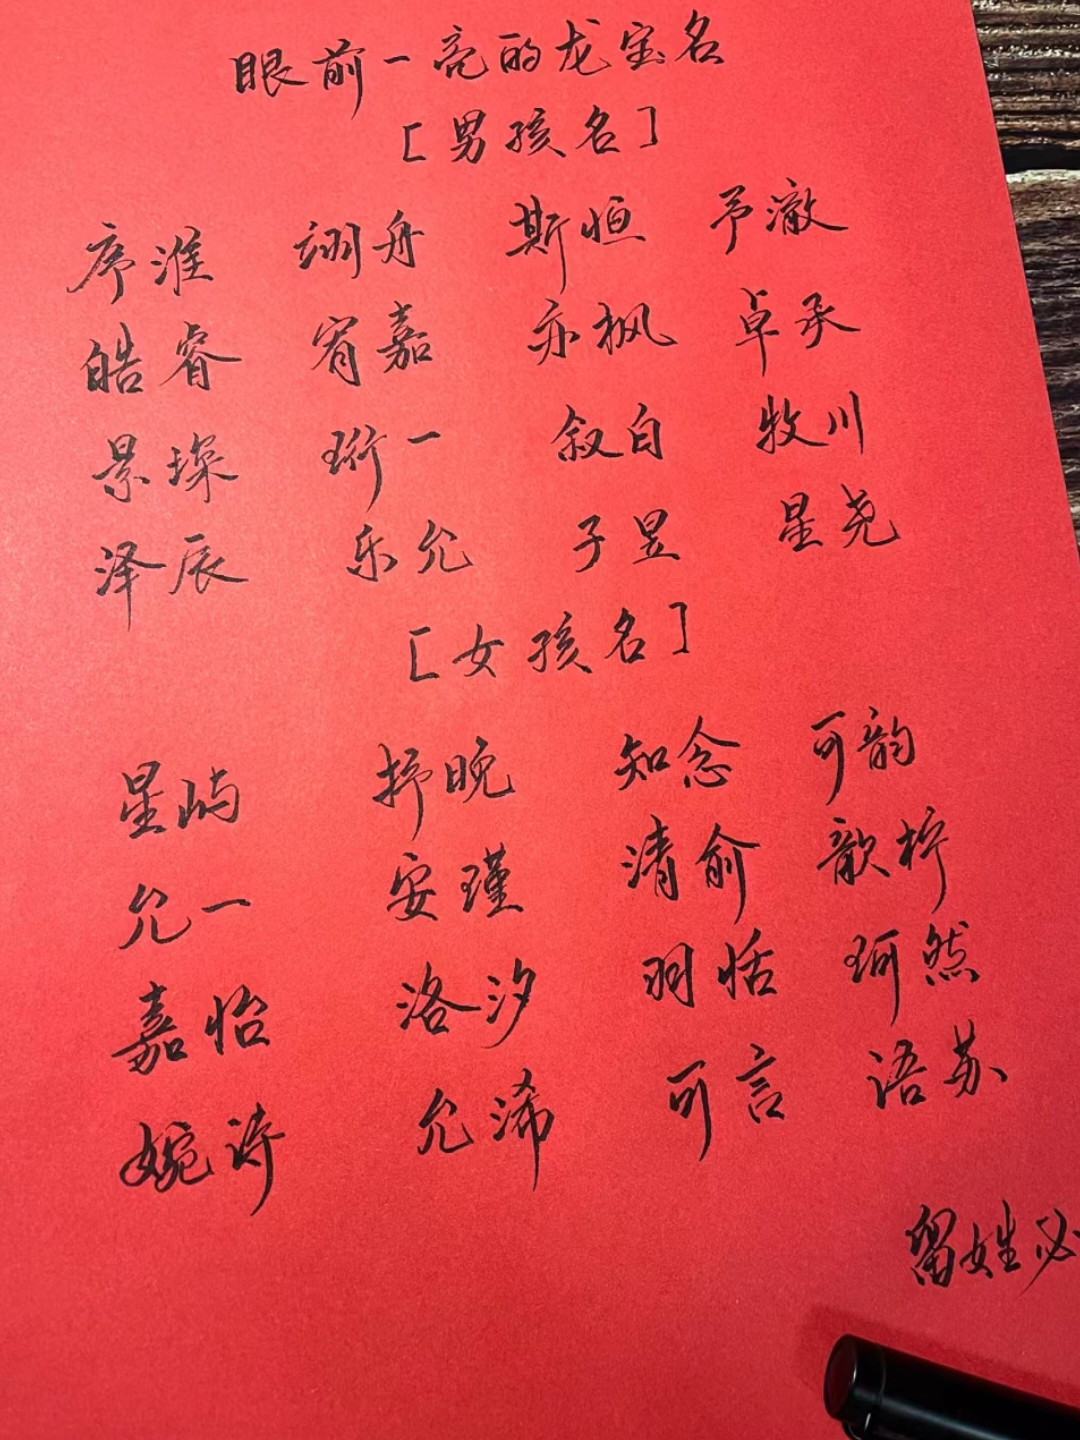 眼前一亮的龙宝名
[男孩名]
序淮 翊舟 斯恒 予澈
皓睿 宥嘉 亦枫 卓承
景琛 珩一 叙白 牧川
泽辰 乐允 子昱 星尧
[女孩名]
星屿 抒晚 知念 可韵
允一 安瑾 清俞 歆柠
嘉怡 洛汐 羽恬 珂然
婉诗 允浠 可言 语苏
留姓必